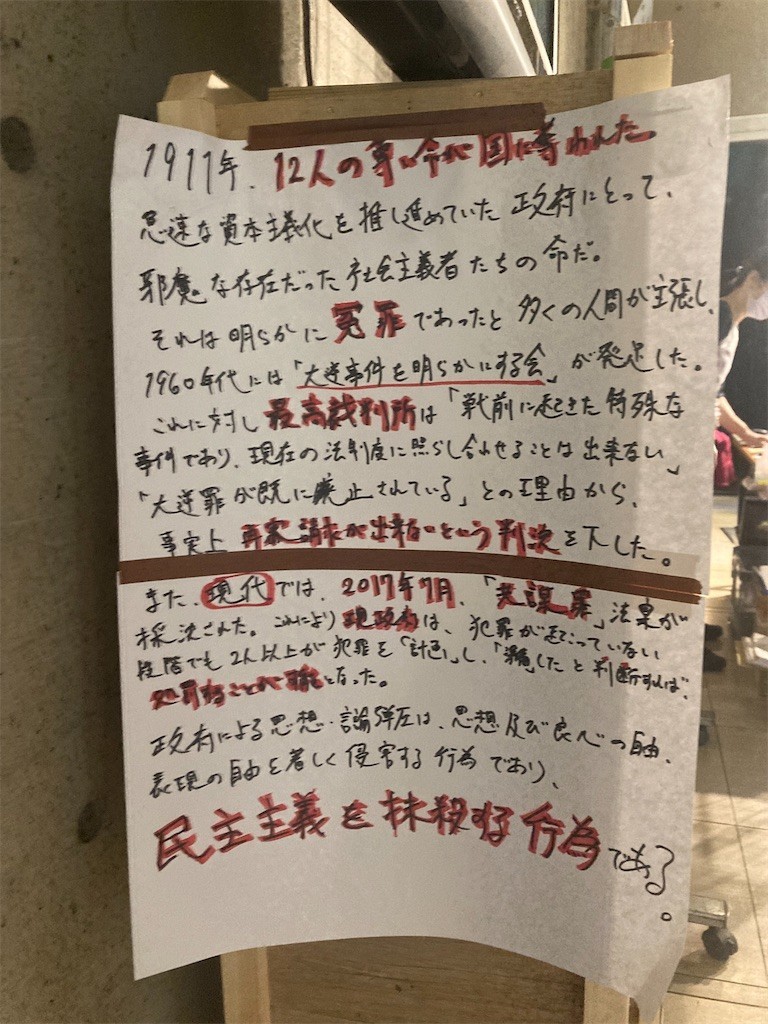 1911年、12人の尊い命が国に奪われた。
急速な資本主義化を推し進めていた政府にとって、
邪魔な存在だった社会主義者たちの命だ。
それは明らかに冤罪であったと多くの人間が主張し、
1960年代には「大逆事件を明らかにする会」が発足した。
これに対し最高裁判所は「戦前に起きた特殊な
事件であり、現在の法制度に照らし合わせることは出来ない」
「大逆罪が既に廃止されている」との理由から、
事実上再審請求が出来ないという判決を下した。
また、現代では、2017年7月、「共謀罪」法案が
採決された。これにより現政府は、犯罪が起こっていない
段階でも2人以上が犯罪を「計画」し、「準備」したと判断すれば、
処罰することが可能となった。
政府による思想・言論弾圧は、思想及び良心の自由、
表現の自由を著しく侵害する行為であり、
民主主義を抹殺する行為である。